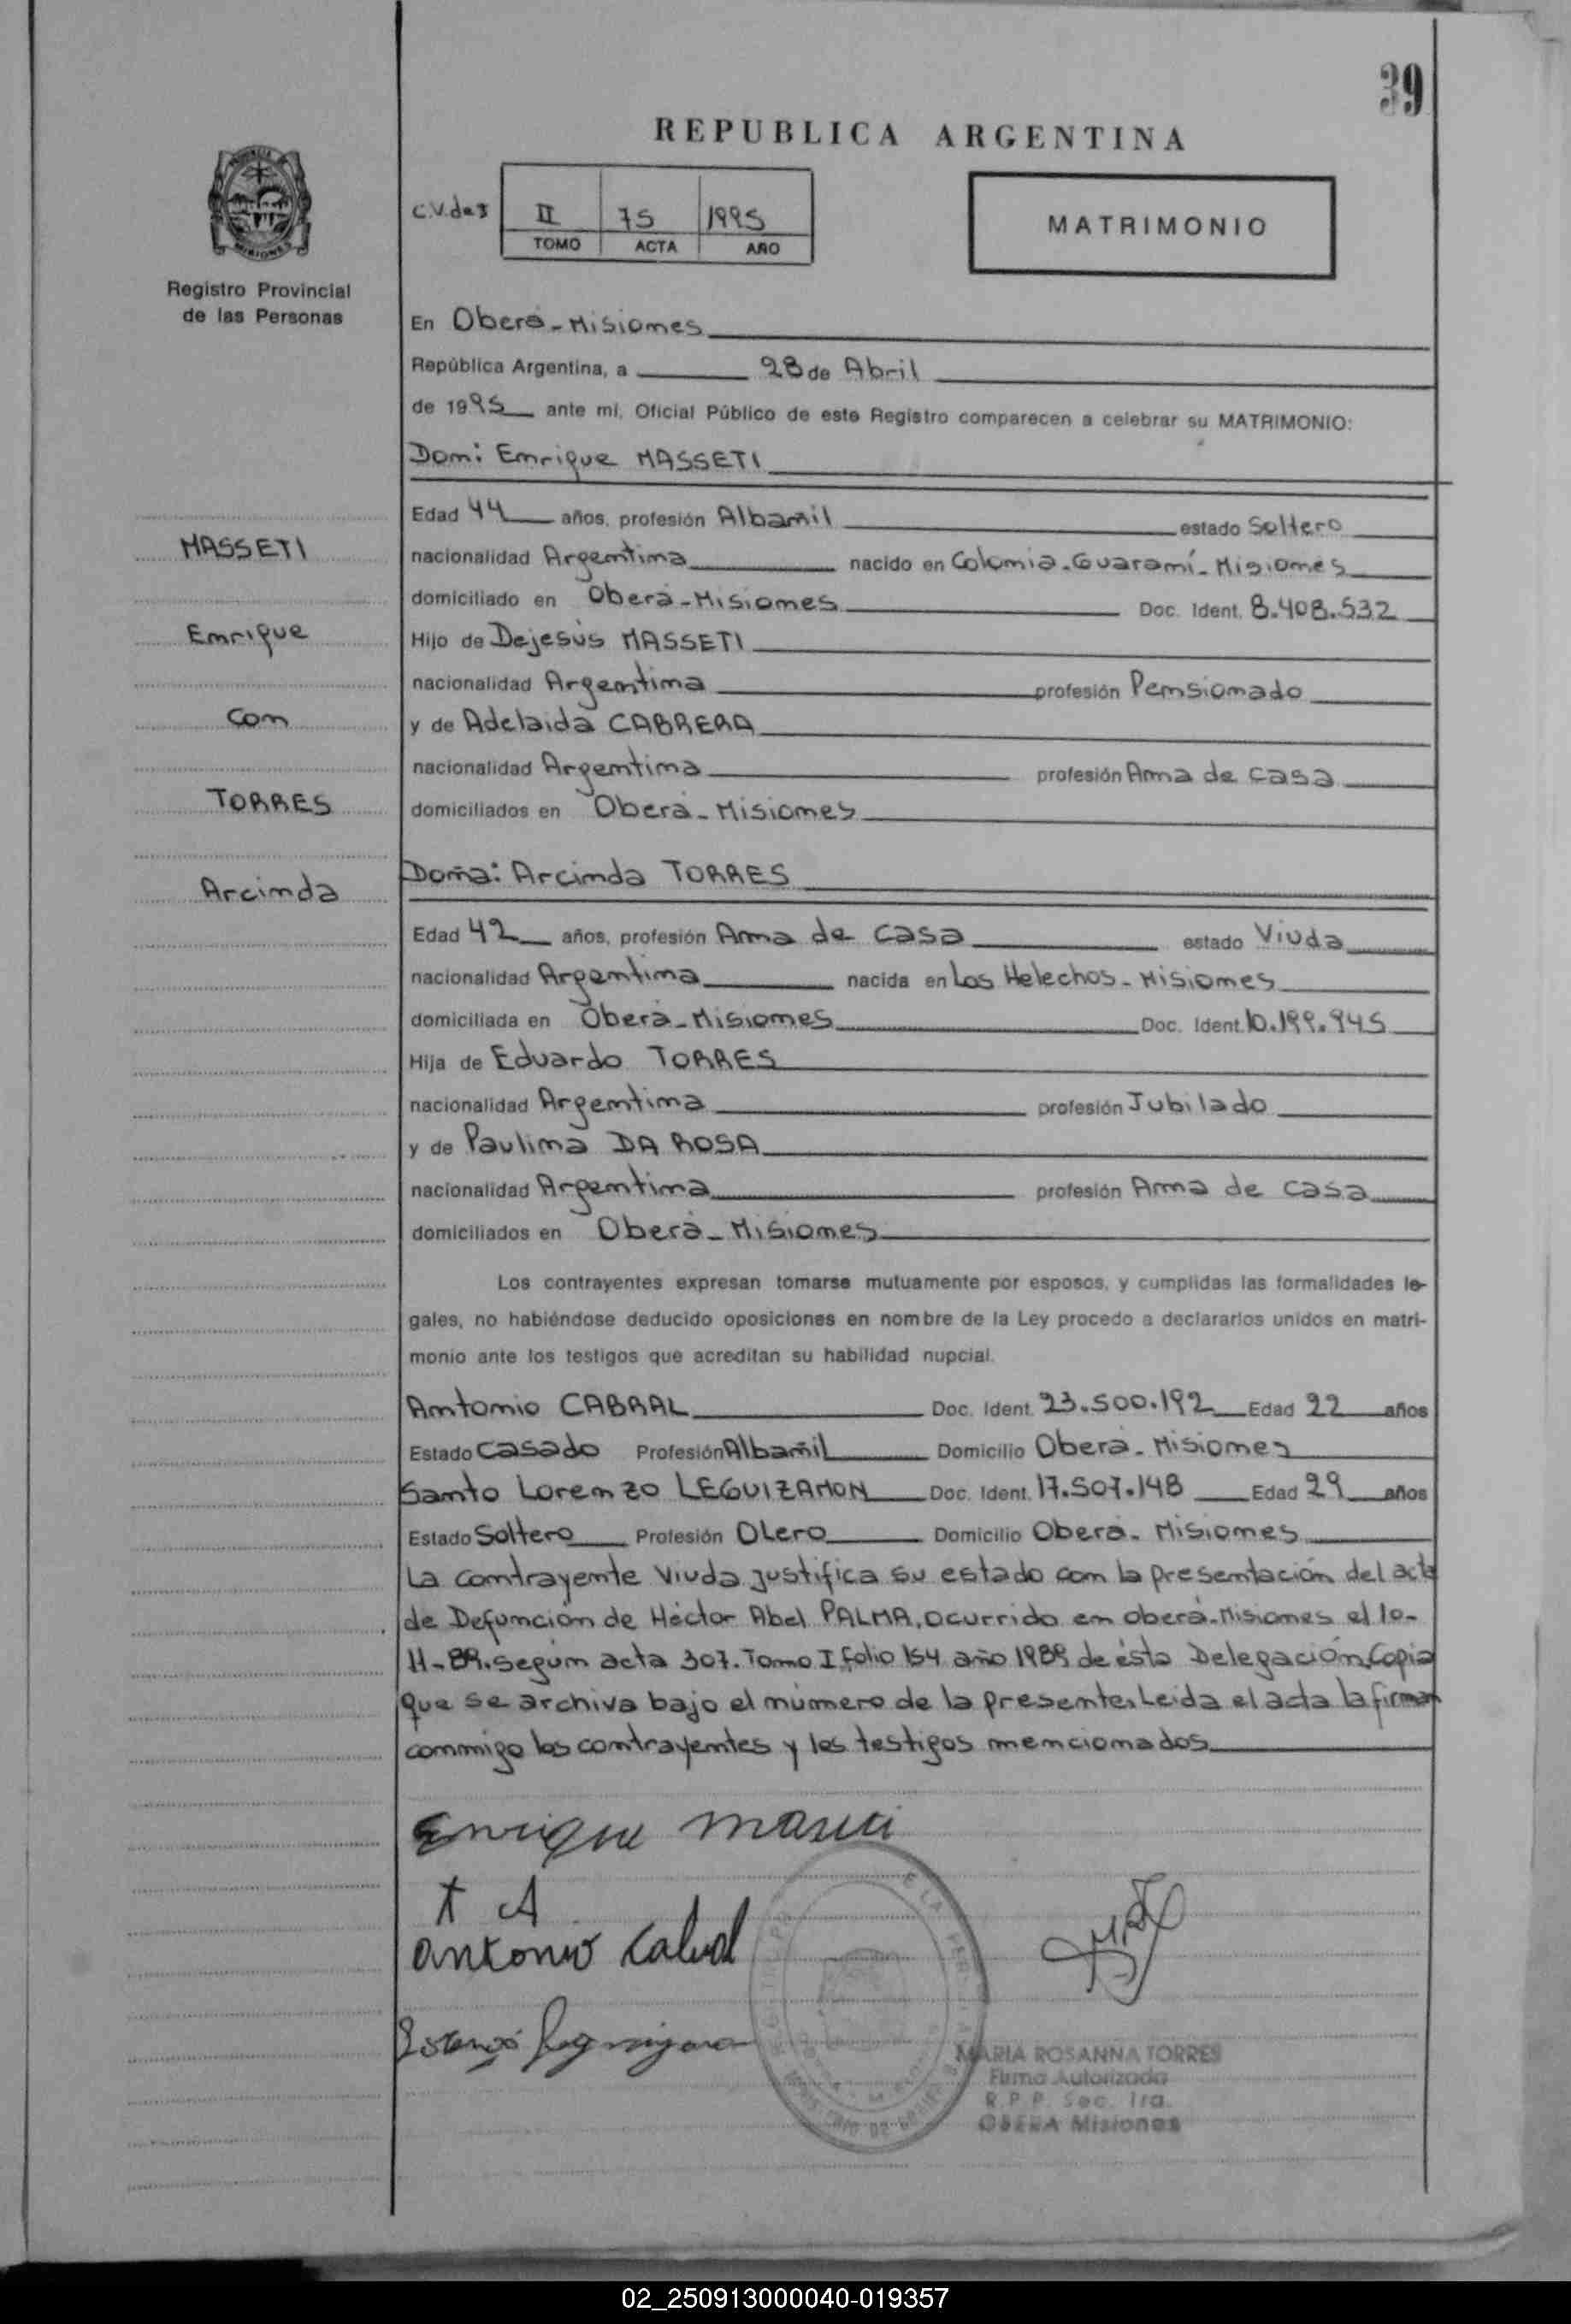 39
REPUBLICA ARGENTINA
C.V.des
II 75 1995
TOMO ACTA AÑO
MATRIMONIO
Registro Provincial
de las Personas
En Oberá-Misiones
República Argentina, a 28 de Abril
de 1995 ante mí, Oficial Público de este Registro comparecen a celebrar su MATRIMONIO:
Don: Enrique MASSETI
Edad 44 años, profesión Albañil estado Soltero
MASSETI
nacionalidad Argentina nacido en Colonia-Guaraní-Misiones
domiciliado en Oberá-Misiones Doc. Ident. 8.408.532
Enrique
Hijo de Dejesús MASSETI
nacionalidad Argentina profesión Pensionado
con
y de Adelaida CABRERA
nacionalidad Argentina profesión Ama de casa
TORRES
domiciliados en Oberá-Misiones
Doña: Arcinda TORRES
Arcinda
Edad 42 años, profesión Ama de casa estado Viuda
nacionalidad Argentina nacida en Los Helechos-Misiones
domiciliada en Oberá-Misiones Doc. Ident. 10.199.945
Hija de Eduardo TORRES
nacionalidad Argentina profesión Jubilado
y de Paulina DA ROSA
nacionalidad Argentina profesión Ama de casa
domiciliados en Oberá-Misiones
Los contrayentes expresan tomarse mutuamente por esposos, y cumplidas las formalidades le-
gales, no habiéndose deducido oposiciones en nombre de la Ley procedo a declararlos unidos en matri-
monio ante los testigos que acreditan su habilidad nupcial.
Antonio CABRAL Doc. Ident. 23.500.192 Edad 22 años
Estado Casado Profesión Albañil Domicilio Oberá-Misiones
Santo Lorenzo LEGUIZAMON Doc. Ident. 17.507.148 Edad 29 años
Estado Soltero Profesión OLero Domicilio Oberá-Misiones
La contrayente viuda justifica su estado con la presentación del acta
de Defunción de Héctor Abel PALMA, ocurrido en oberá-Misiones el 10-
11-89. según acta 307. Tomo I folio 154 año 1989 de ésta Delegación. Copia
que se archiva bajo el número de la presente. Leida el acta la firman
conmigo los contrayentes y los testigos mencionados
Enrique Maseti
+ A
antonio Cabral
MARIA ROSANNA TORRES
Firma Autorizada
R.P.P. Sec. 1ra.
OBERA Misiones
02_250913000040-019357